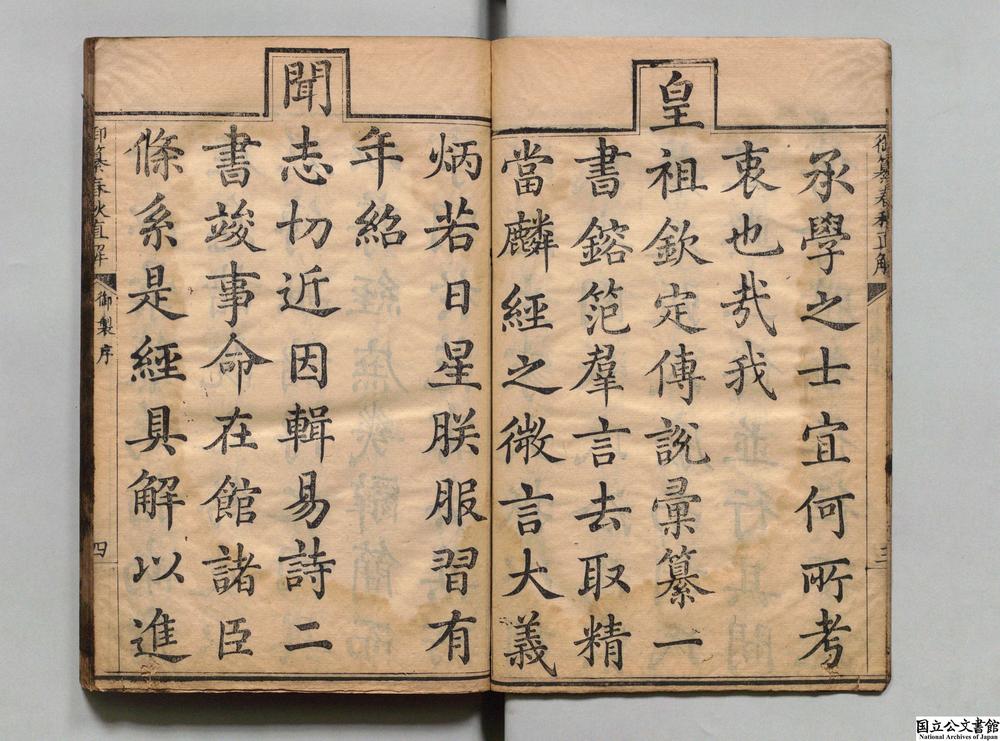 御纂春秋直解
三
承學之士宜何所考
衷也哉我
皇祖欽定傳說彙纂一
書鎔范羣言去取精
當麟經之微言大義
炳若日星朕服習有
年紹
聞志切近因輯易詩二
書竣事命在館諸臣
條系是經具解以進
御纂春秋直解
御製序
四
国立公文書館
National Archives of Japan